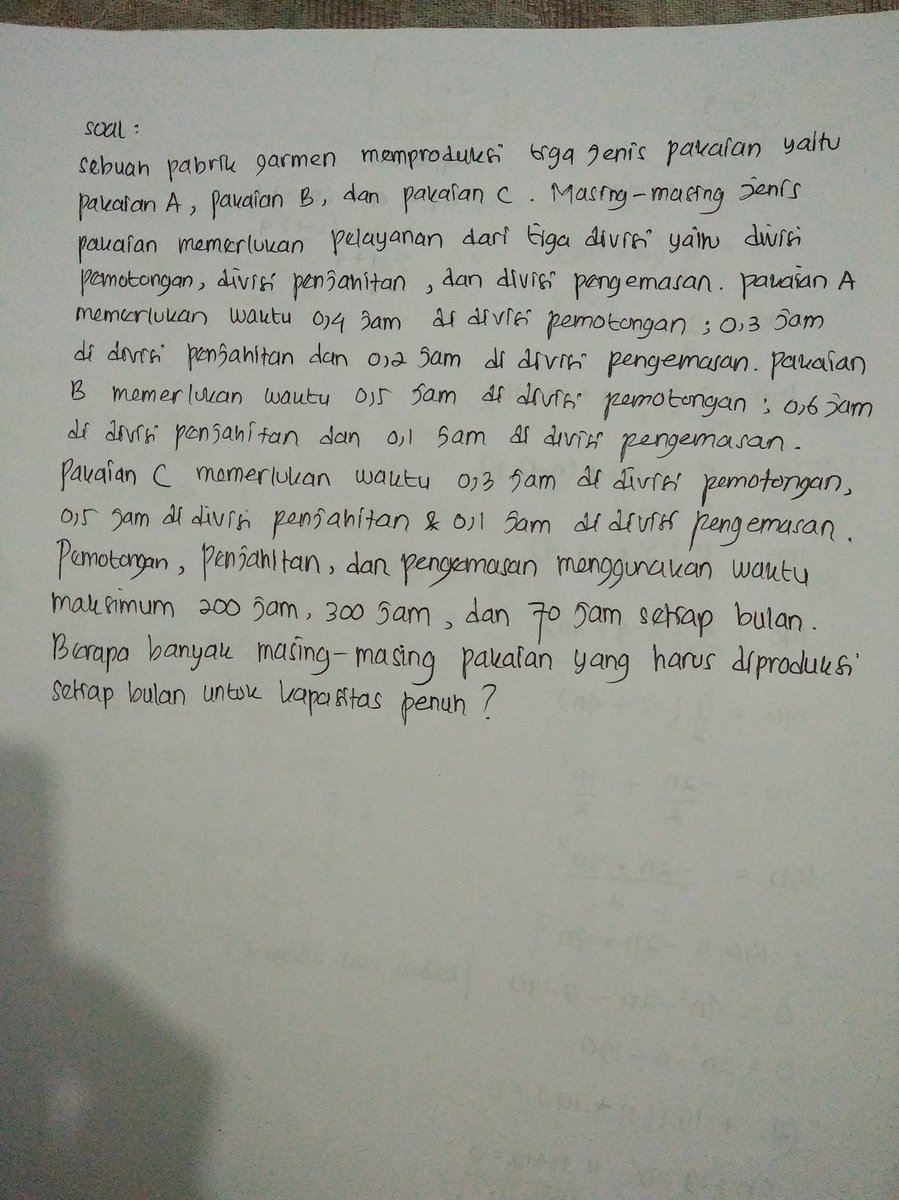 soal :
sebuah pabrik garmen memproduksi tiga jenis pakaian yaitu
pakaian A, pakaian B, dan pakaian C. Masing-masing jenis
pakaian memerlukan pelayanan dari tiga divisi yaitu divisi
pemotongan, divisi penjahitan, dan divisi pengemasan. pakaian A
memerlukan waktu 0,4 jam di divisi pemotongan ; 0,3 jam
di divisi penjahitan dan 0,2 jam di divisi pengemasan. pakaian
B memerlukan waktu 0,5 jam di divisi pemotongan ; 0,6 jam
di divisi penjahitan dan 0,1 jam di divisi pengemasan.
pakaian C memerlukan waktu 0,3 jam di divisi pemotongan,
0,5 jam di divisi penjahitan & 0,1 jam di divisi pengemasan.
Pemotongan, Penjahitan, dan pengemasan menggunakan waktu
maksimum 200 jam, 300 jam, dan 70 jam setiap bulan.
Berapa banyak masing-masing pakaian yang harus diproduksi
setiap bulan untuk kapasitas penuh ?